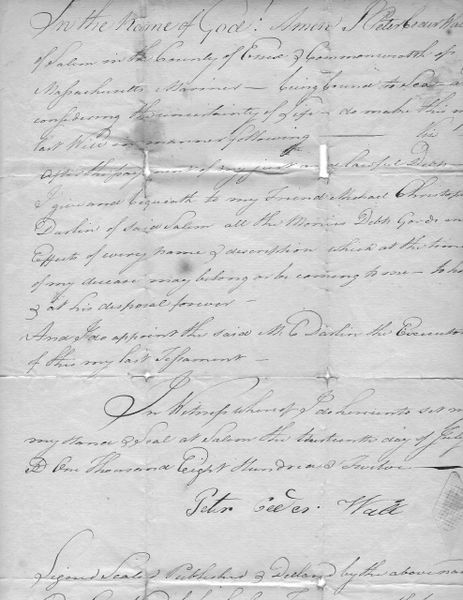 In the Name of God! Amen I Peter
of Salem in the County of Essex & Commonwealth of
Massachusetts Mariner – being bound to Sea – a
considering the uncertainty of Life – do make this m
last Will in manner following – viz
After the payment of my just and lawful Debts
I give and bequeath to my Friend Michael Christop
Darlin of said Salem all the Monies Debts Goods an
Effects of every name & description which at the time
of my decease may belong or be coming to me – to h
& at his disposal forever –
And I do appoint the said M C Darlin the Executor
of this my last Testament –
In Witness whereof I do hereunto set m
my Hand & Seal at Salem the day of July
D One Thousand Eight Hundred & Twelve
Peter Wall
Signed Sealed Published & Declared by the above na